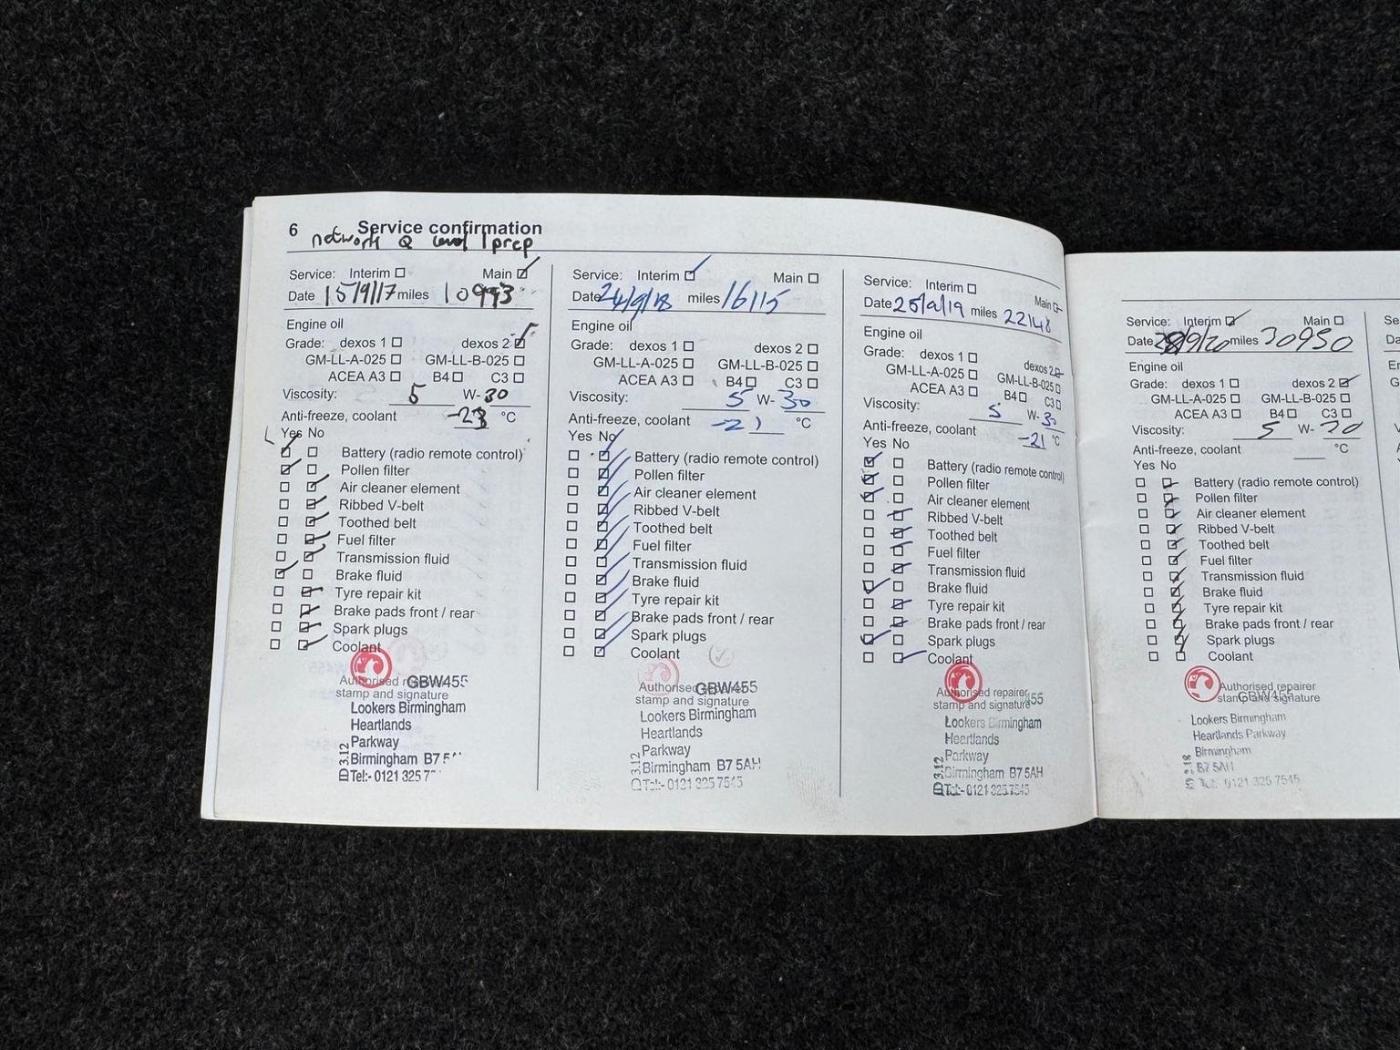 6 Service confirmation
network Q level 1 prep
Service: Interim Main
Date 15/9/17 miles 10993
Engine oil
Grade: dexos 1 dexos 2
GM-LL-A-025 GM-LL-B-025
ACEA A3 B4 C3
Viscosity: 5 W-30
Anti-freeze, coolant -23 °C
Yes No
Battery (radio remote control)
Pollen filter
Air cleaner element
Ribbed V-belt
Toothed belt
Fuel filter
Transmission fluid
Brake fluid
Tyre repair kit
Brake pads front / rear
Spark plugs
Coolant
Authorised GBW455
stamp and signature
Lookers Birmingham
Heartlands
Parkway
Birmingham B7
Tel:- 0121 325
Service: Interim Main
Date 24/9/18 miles 16115
Engine oil
Grade: dexos 1 dexos 2
GM-LL-A-025 GM-LL-B-025
ACEA A3 B4 C3
Viscosity: 5 W-30
Anti-freeze, coolant -21 °C
Yes No
Battery (radio remote control)
Pollen filter
Air cleaner element
Ribbed V-belt
Toothed belt
Fuel filter
Transmission fluid
Brake fluid
Tyre repair kit
Brake pads front / rear
Spark plugs
Coolant
Authorised GBW455
stamp and signature
Lookers Birmingham
Heartlands
Parkway
Birmingham B7 5AH
0121 325 7545
Service: Interim Main
Date 25/9/19 miles 22148
Engine oil
Grade: dexos 1 dexos 2
GM-LL-A-025 GM-LL-B-025
ACEA A3 B4 C3
Viscosity: 5 W-30
Anti-freeze, coolant -21 °C
Yes No
Battery (radio remote control)
Pollen filter
Air cleaner element
Ribbed V-belt
Toothed belt
Fuel filter
Transmission fluid
Brake fluid
Tyre repair kit
Brake pads front / rear
Spark plugs
Coolant
Authorised repairer
stamp and signature 455
Lookers Birmingham
Heartlands
Parkway
Birmingham B7 5AH
Tel:- 0121 325 7545
Service: Interim Main
Date /9/20 miles 30950
Engine oil
Grade: dexos 1 dexos 2
GM-LL-A-025 GM-LL-B-025
ACEA A3 B4 C3
Viscosity: 5 W-30
Anti-freeze, coolant °C
Yes No
Battery (radio remote control)
Pollen filter
Air cleaner element
Ribbed V-belt
Toothed belt
Fuel filter
Transmission fluid
Brake fluid
Tyre repair kit
Brake pads front / rear
Spark plugs
Coolant
Authorised repairer
stamp and signature
GBW455
Lookers Birmingham
Heartlands Parkway
Birmingham
B7 5AH
0121 325 7545